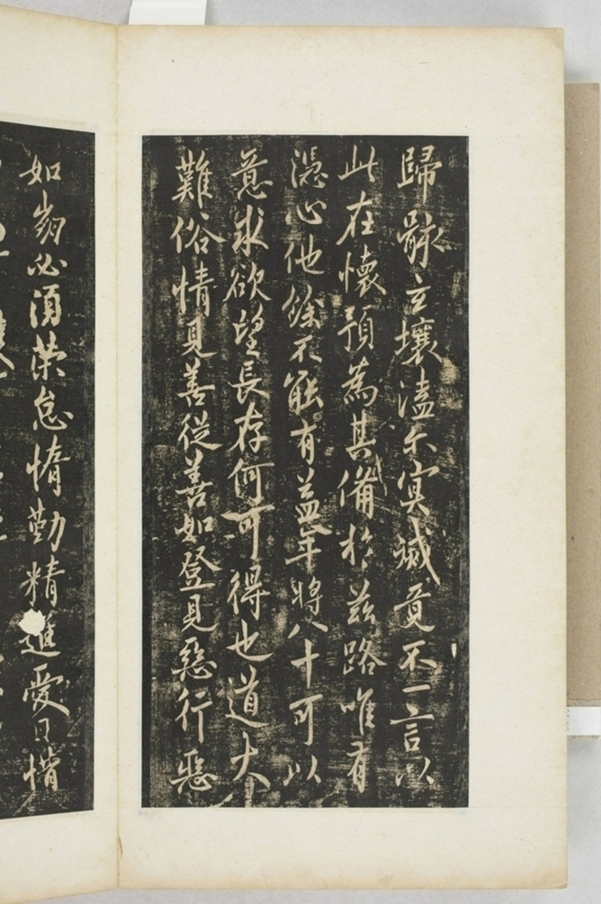 歸骸玄壤溘尒寘滅竟不一言以
此在懷預為其備於茲路唯有
憑心他餘不能有益年將八十可以
意求欲望長存何可得也道大
難俗情見善從善如登見惡行惡
如必須策怠惰勤精進愛日惜